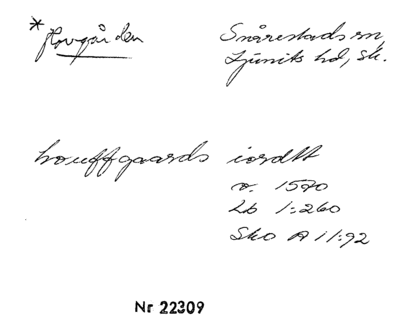 * Hovgården
Snårestads sn,
Ljunits hd, Sk.
houffgaards iordtt
v. 1570
Lb 1:260
Sko A II:92
Nr 22309